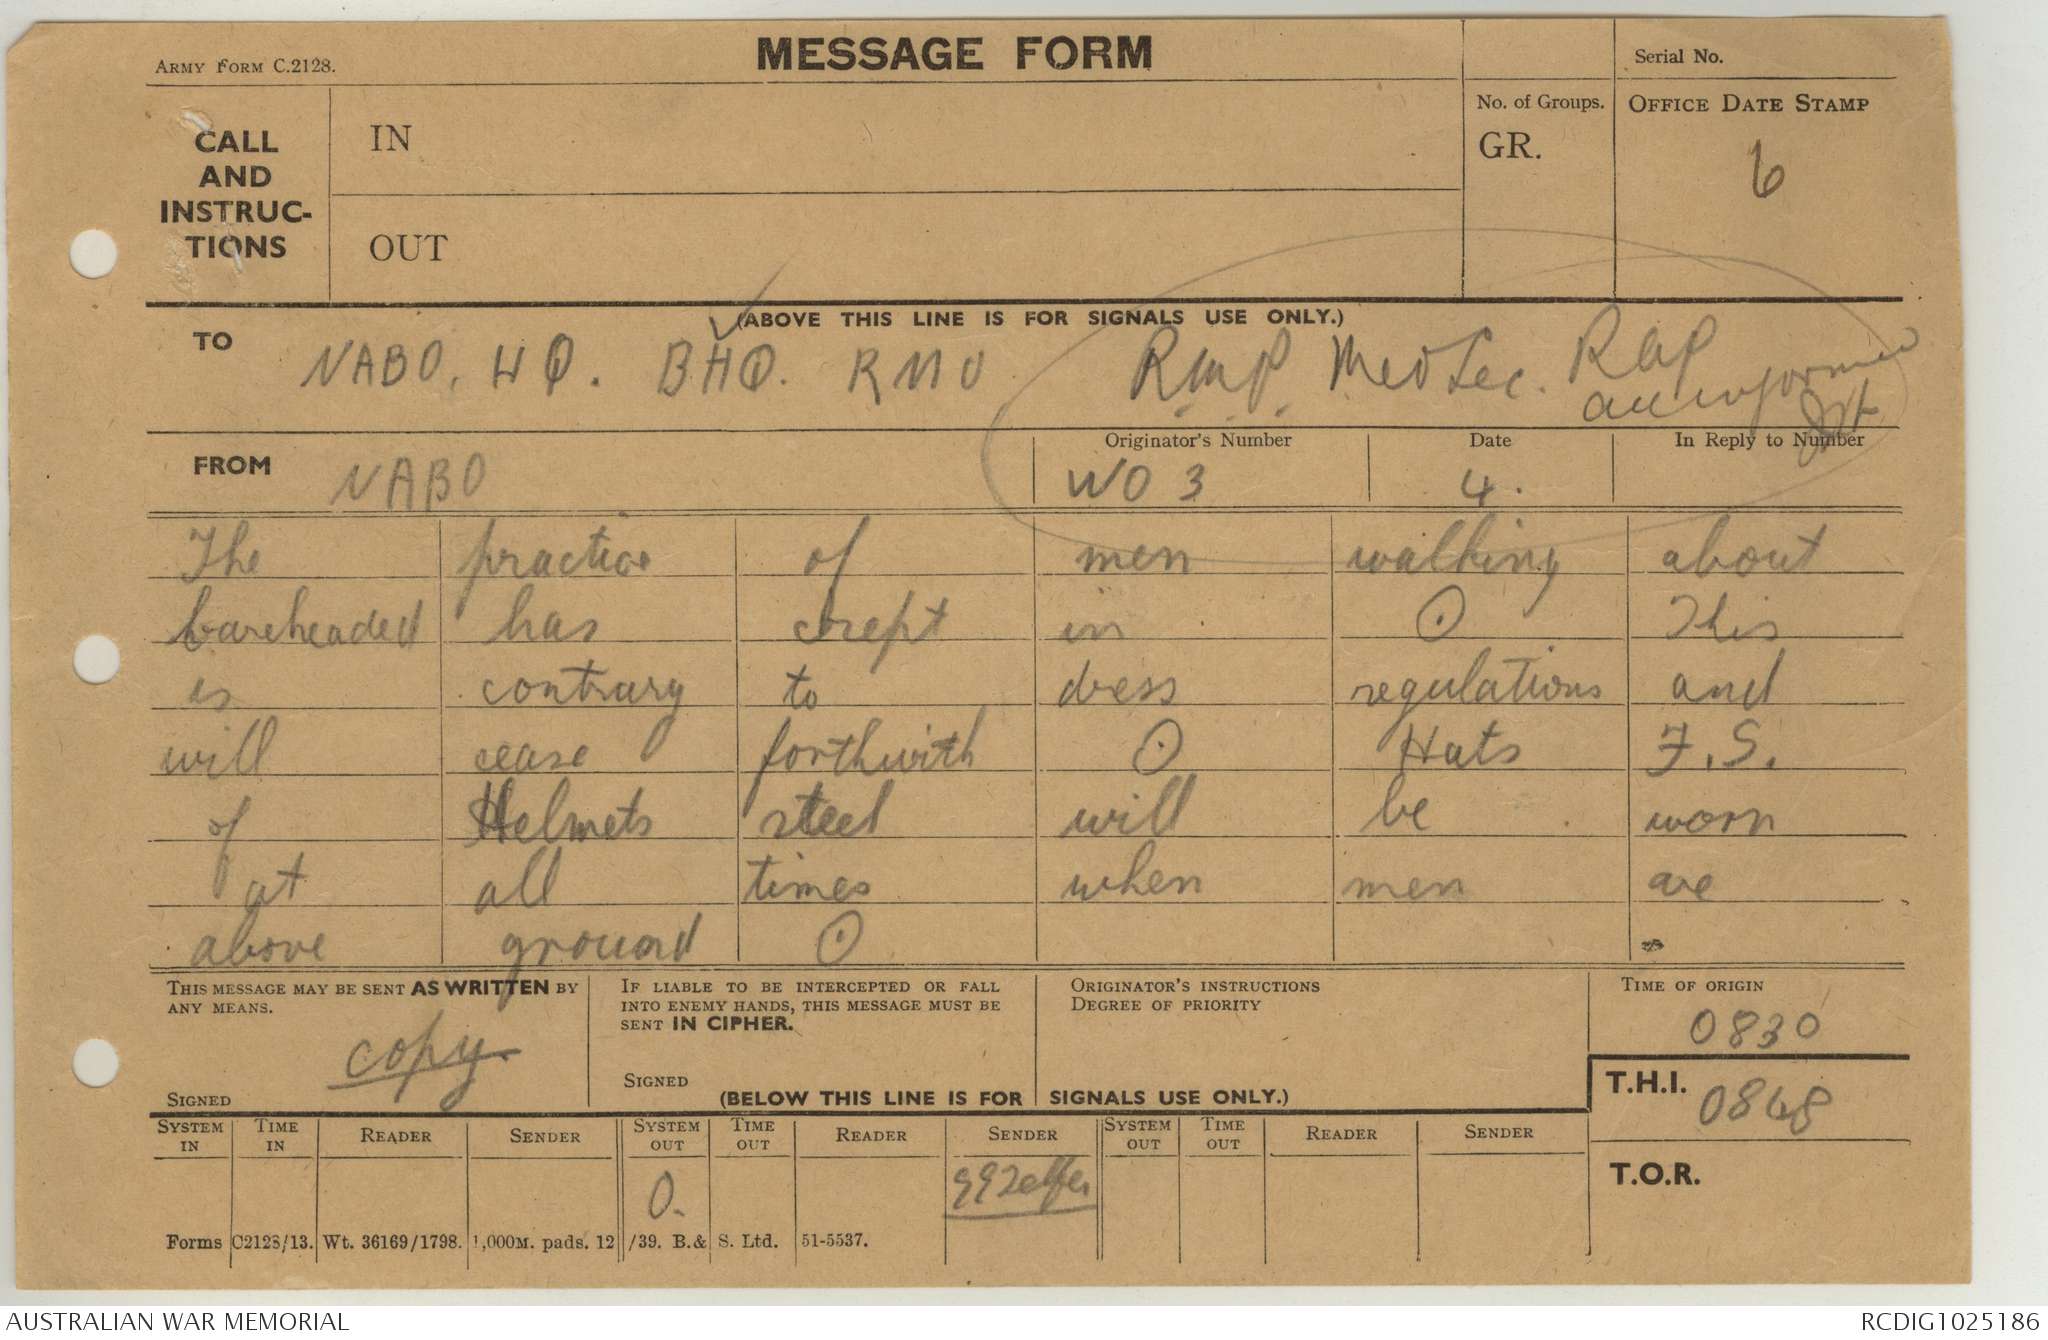 ARMY FORM C.2128.
MESSAGE FORM
Serial No.
CALL AND INSTRUC-TIONS
IN
OUT
No. of Groups.
GR.
OFFICE DATE STAMP
6
(ABOVE THIS LINE IS FOR SIGNALS USE ONLY.)
TO
NABO, HQ. BHQ. RMU
RMP Med Sec. RAP
all informed
FROM
NABO
Originator's Number
WO 3
Date
4.
In Reply to Number
The practice of men walking about
bareheaded has crept in ⊙ This
is contrary to dress regulations and
will cease forthwith ⊙ Hats F.S.
of Helmets steel will be worn
at all times when men are
above ground ⊙
THIS MESSAGE MAY BE SENT AS WRITTEN BY ANY MEANS.
copy.
SIGNED
IF LIABLE TO BE INTERCEPTED OR FALL INTO ENEMY HANDS, THIS MESSAGE MUST BE SENT IN CIPHER.
SIGNED
ORIGINATOR'S INSTRUCTIONS
DEGREE OF PRIORITY
TIME OF ORIGIN
0830
(BELOW THIS LINE IS FOR SIGNALS USE ONLY.)
T.H.I.
0848
T.O.R.
SYSTEM IN TIME IN READER SENDER SYSTEM OUT TIME OUT READER SENDER SYSTEM OUT TIME OUT READER SENDER
O.
Forms C2128/13. Wt. 36169/1798. 1,000M. pads. 12/39. B.& S. Ltd. 51-5537.
AUSTRALIAN WAR MEMORIAL
RCDIG1025186